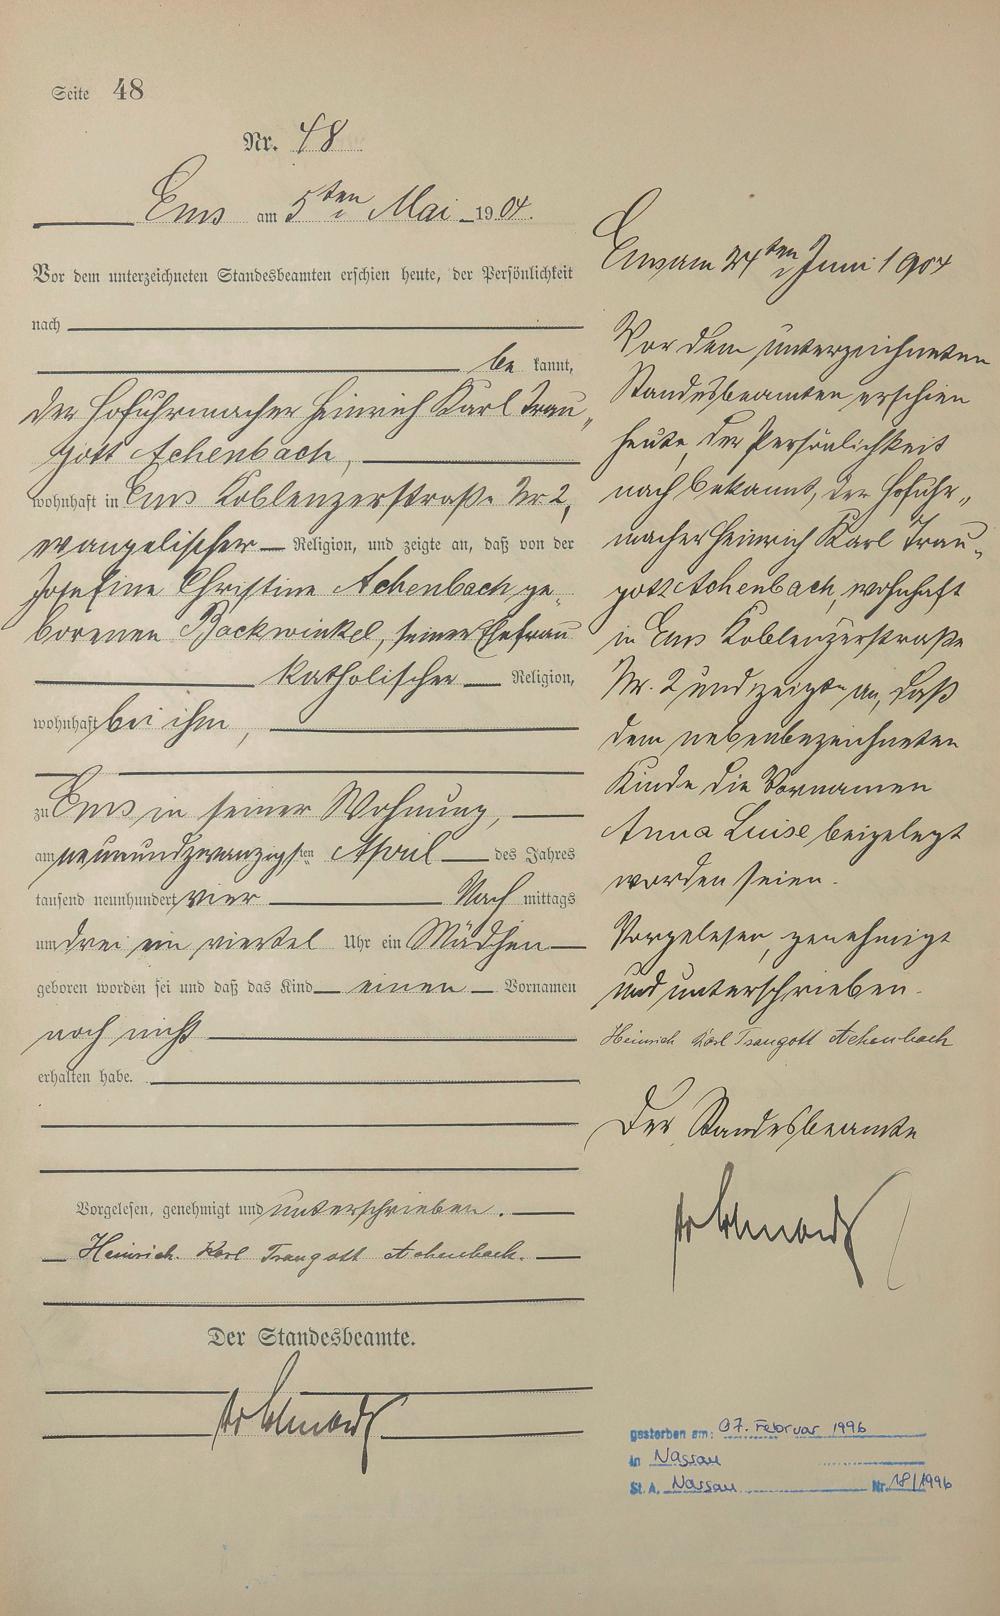 Seite 48
Nr. 48
Ems am 5ten Mai 1904.
Vor dem unterzeichneten Standesbeamten erschien heute, der Persönlichkeit
nach
be kannt,
der Hofuhrmacher Heinrich Karl Trau„
gott Achenbach,
wohnhaft in Ems Koblenzerstraße Nr 2,
evangelischer Religion, und zeigte an, daß von der
Josefine Christine Achenbach ge„
borenen Backwinkel, seiner Ehefrau
katholischer Religion,
wohnhaft bei ihm,
zu Ems in seiner Wohnung,
am neunundzwanzigsten April des Jahres
tausend neunhundert vier Nach mittags
um drei ein viertel Uhr ein Mädchen
geboren worden sei und daß das Kind einen Vornamen
noch nicht
erhalten habe.
Vorgelesen, genehmigt und unterschrieben.
Heinrich Karl Traugott Achenbach.
Der Standesbeamte.
Ems am 24ten Juni 1904
Vor dem unterzeichneten
Standesbeamten erschien
heute, der Persönlichkeit
nach bekannt, der Hofuhr„
macher Heinrich Karl Trau„
gott Achenbach, wohnhaft
in Ems Koblenzerstraße
Nr. 2 und zeigte an, daß
dem nebenbezeichneten
Kinde die Vornamen
Anna Luise beigelegt
worden seien.
Vorgelesen, genehmigt
und unterschrieben.
Heinrich Karl Traugott Achenbach
Der Standesbeamte
gestorben am: 07. Februar 1996
in Nassau
St. A. Nassau Nr. 18/1996